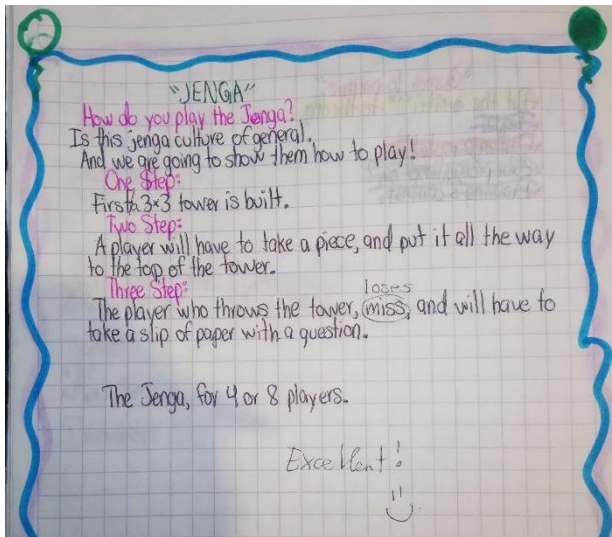 "JENGA"
How do you play the Jenga?
Is this jenga culture of general.
And we are going to show them how to play!
One Step:
First a 3x3 tower is built.
Two Step:
A player will have to take a piece, and put it all the way
to the top of the tower.
Three Step:
loses
The player who throws the tower, miss, and will have to
take a slip of paper with a question.
The Jenga, for 4 or 8 players.
Excellent!